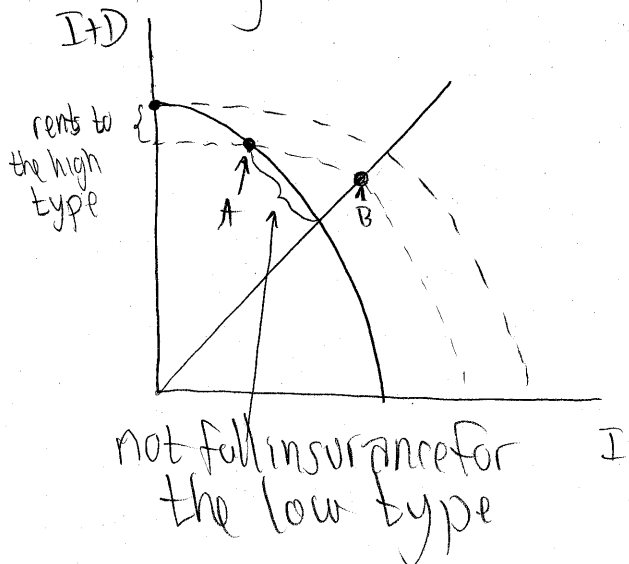 I+D
rents to
the high
type
A
B
not full insurance for
the low type
I